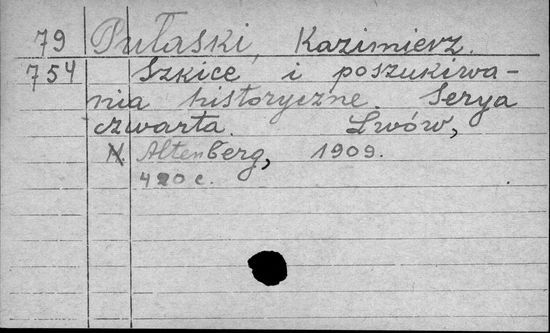 79 Pułaski, Kazimierz.
754 Szkice i poszukiwa-
nia historyczne. Serya
czwarta. Lwów,
N. Altenberg, 1909.
420 c.